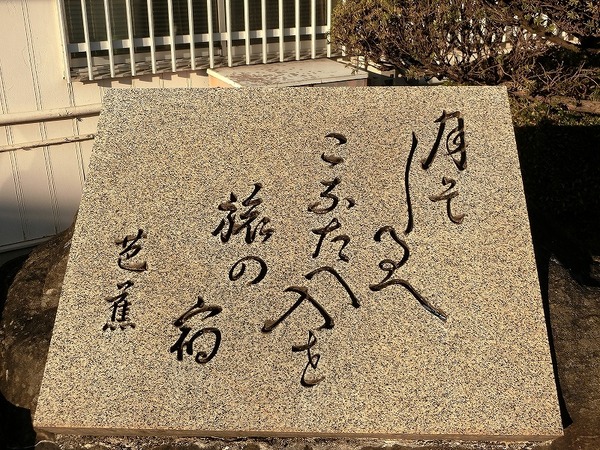 月そ
しるへ
こなたへ入せ
旅の
宿
芭蕉